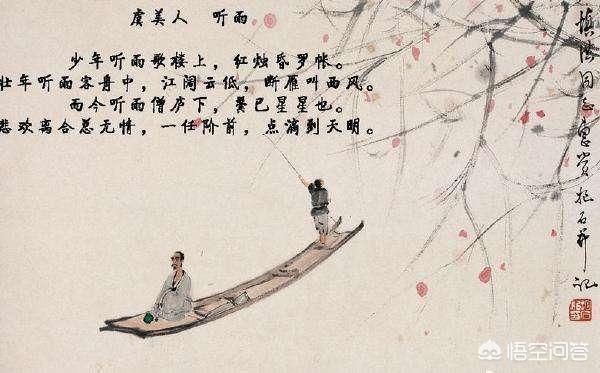 虞美人 听雨
少年听雨歌楼上，红烛昏罗帐。
壮年听雨客舟中，江阔云低，断雁叫西风。
而今听雨僧庐下，鬓已星星也。
悲欢离合总无情，一任阶前，点滴到天明。
同志惠赏抱石并记
悟空问答